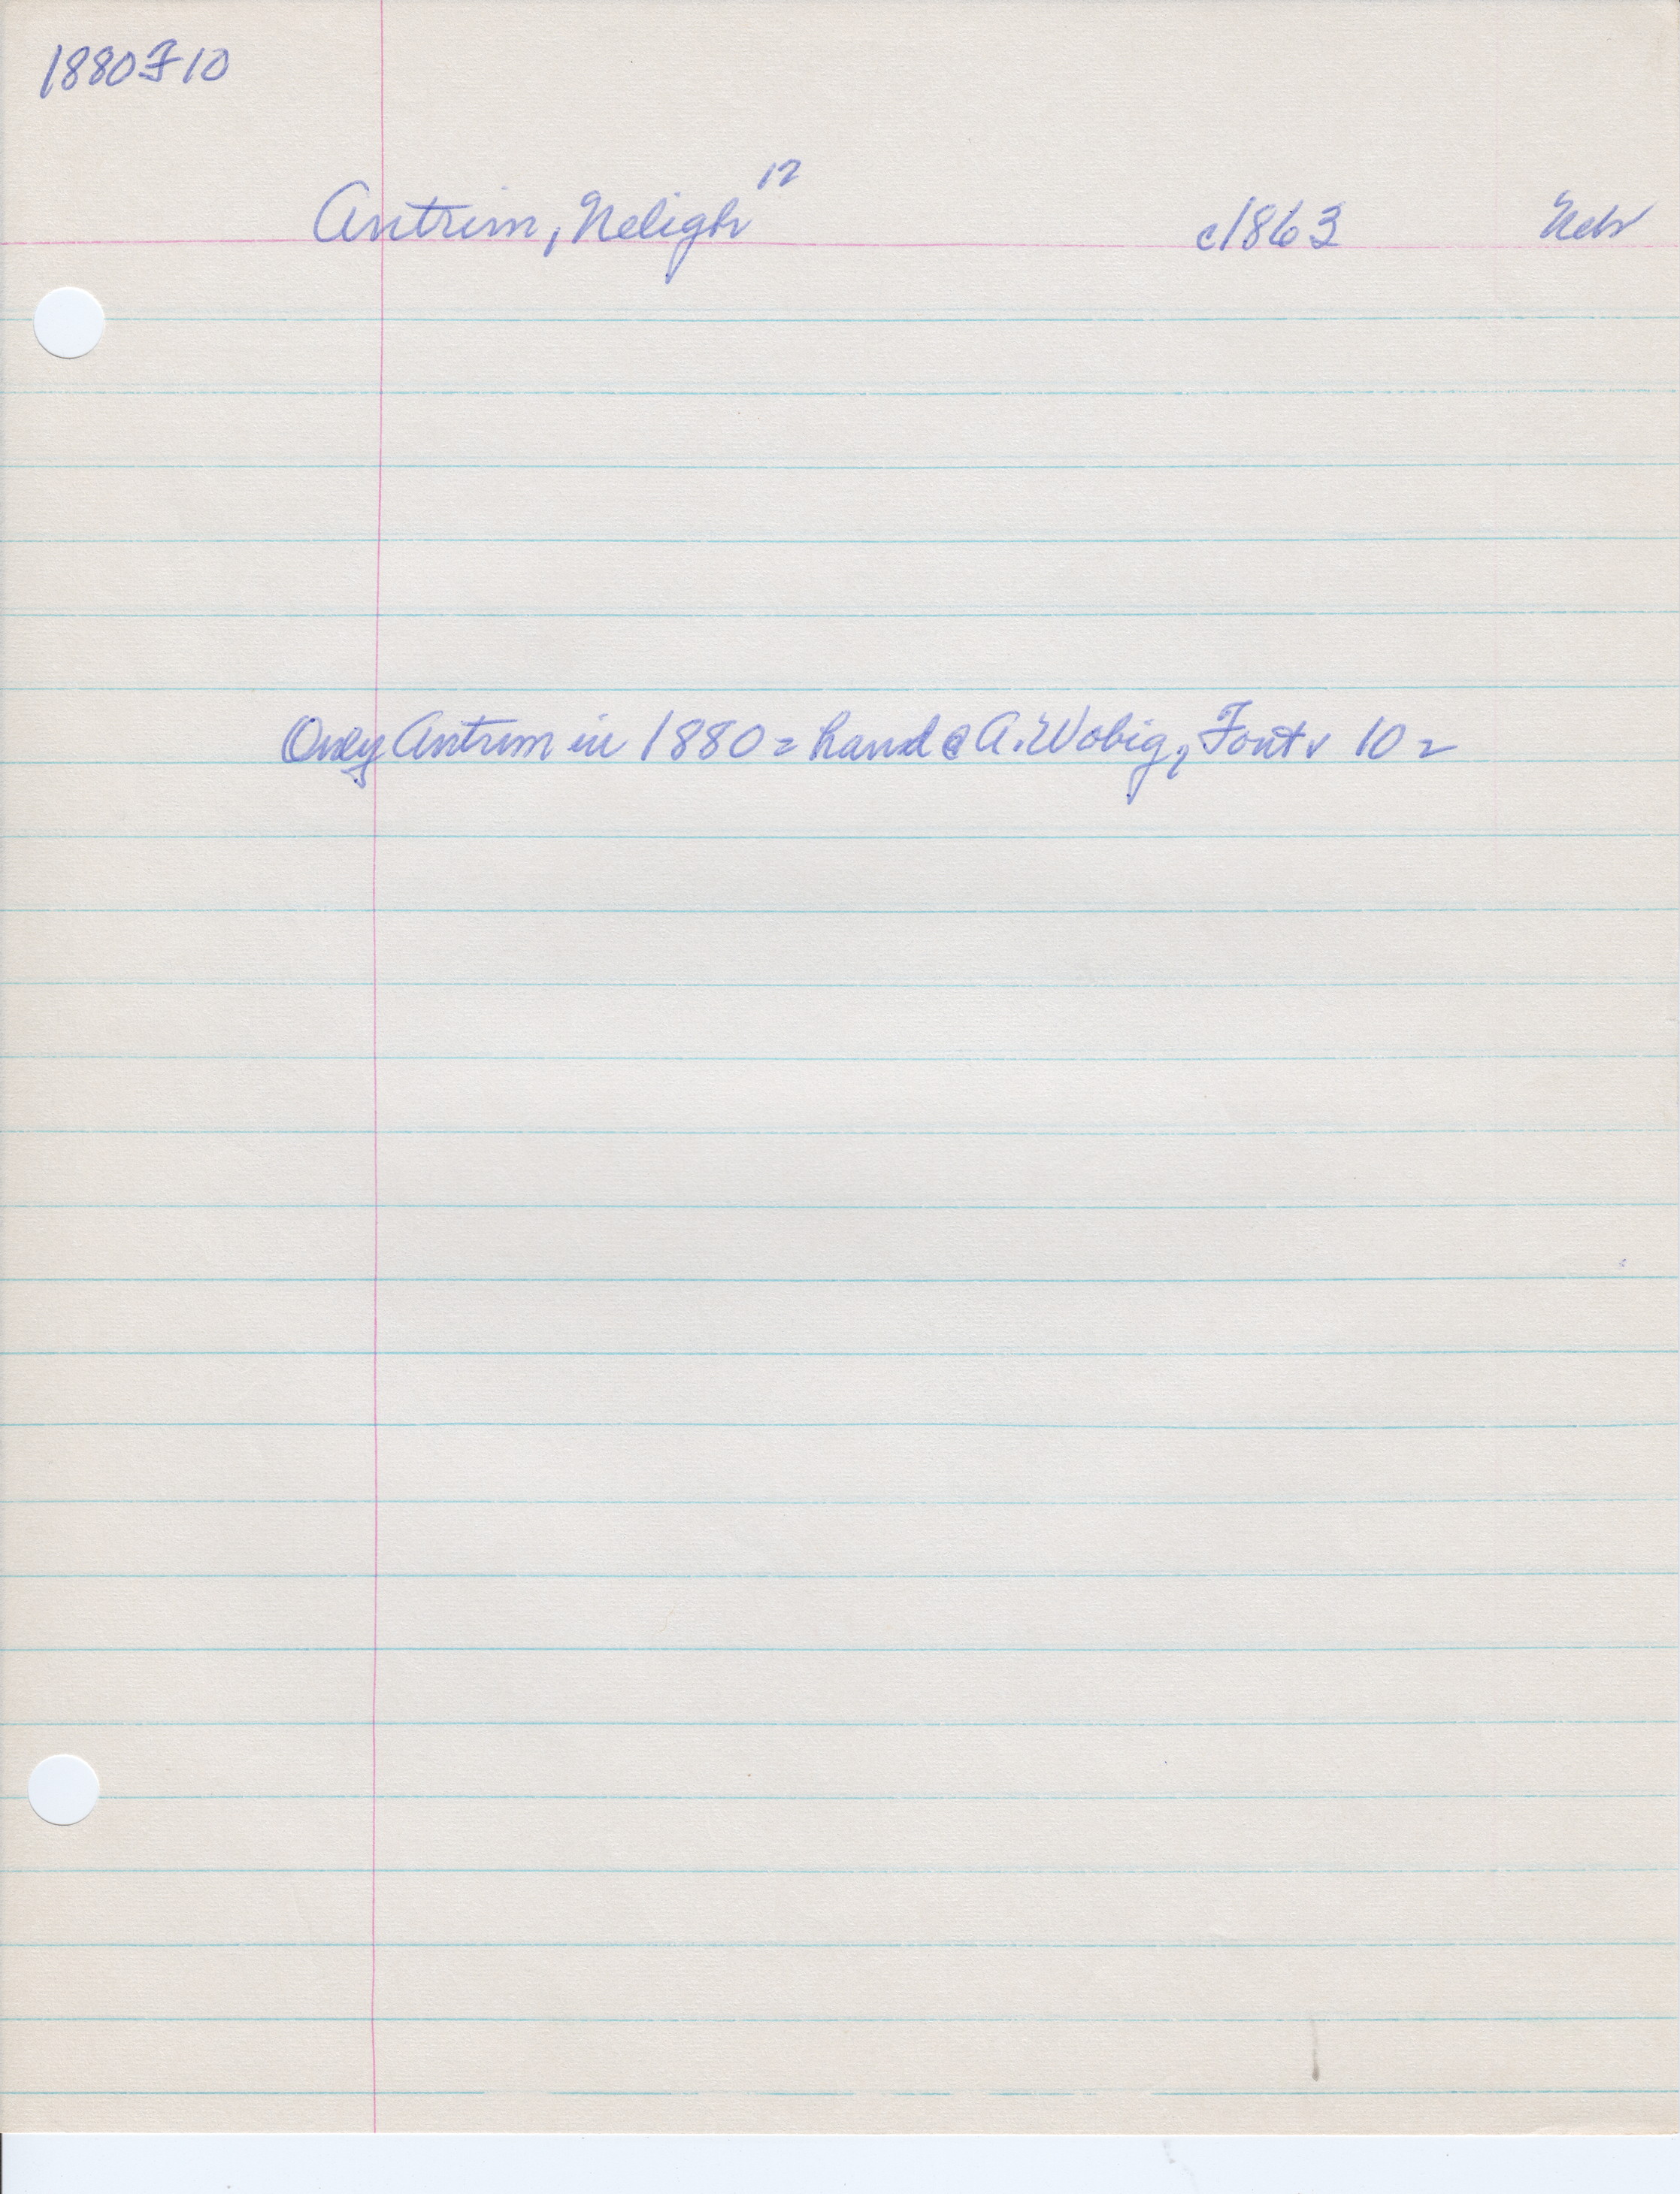 1880 F 10
Antrim, Neligh 17 c1863 Neb
Only Antrim in 1880 = hand @ A. Wobig, Font v 10 =